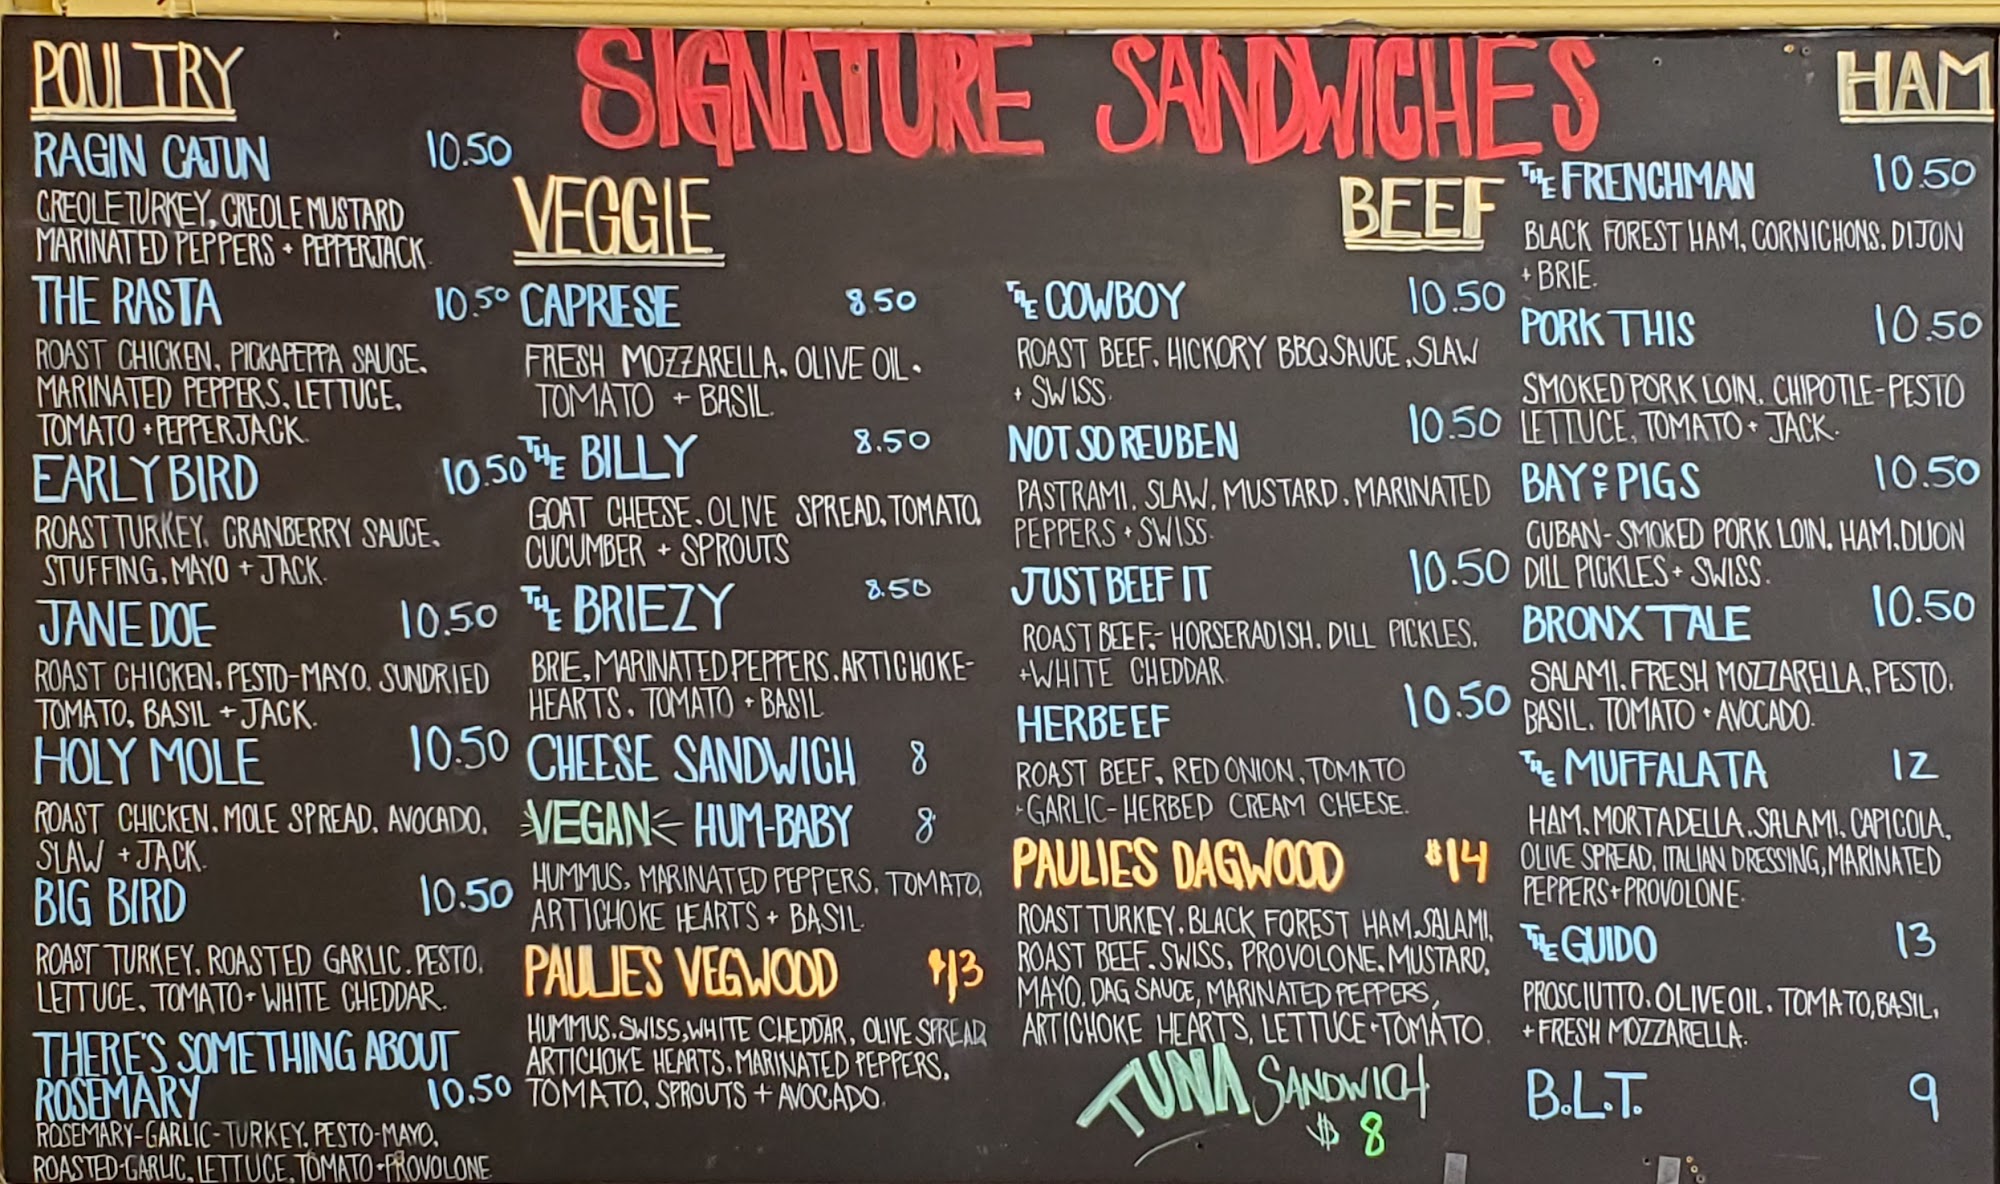 SIGNATURE SANDWICHES
POULTRY
RAGIN CAJUN 10.50
CREOLE TURKEY, CREOLE MUSTARD
MARINATED PEPPERS + PEPPERJACK.
THE RASTA 10.50
ROAST CHICKEN, PICKAPEPPA SAUCE,
MARINATED PEPPERS, LETTUCE,
TOMATO + PEPPERJACK.
EARLY BIRD 10.50
ROAST TURKEY, CRANBERRY SAUCE,
STUFFING, MAYO + JACK.
JANE DOE 10.50
ROAST CHICKEN, PESTO-MAYO, SUNDRIED
TOMATO, BASIL + JACK.
HOLY MOLE 10.50
ROAST CHICKEN, MOLE SPREAD, AVOCADO,
SLAW + JACK.
BIG BIRD 10.50
ROAST TURKEY, ROASTED GARLIC, PESTO,
LETTUCE, TOMATO + WHITE CHEDDAR.
THERE'S SOMETHING ABOUT
ROSEMARY 10.50
ROSEMARY-GARLIC-TURKEY, PESTO-MAYO,
ROASTED-GARLIC, LETTUCE, TOMATO + PROVOLONE
VEGGIE
CAPRESE 8.50
FRESH MOZZARELLA, OLIVE OIL,
TOMATO + BASIL.
THE BILLY 8.50
GOAT CHEESE, OLIVE SPREAD, TOMATO,
CUCUMBER + SPROUTS
THE BRIEZY 8.50
BRIE, MARINATED PEPPERS, ARTICHOKE-
HEARTS, TOMATO + BASIL
CHEESE SANDWICH 8
VEGAN HUM-BABY 8
HUMMUS, MARINATED PEPPERS, TOMATO,
ARTICHOKE HEARTS + BASIL.
PAULIES VEGWOOD $13
HUMMUS, SWISS, WHITE CHEDDAR, OLIVE SPREAD
ARTICHOKE HEARTS, MARINATED PEPPERS,
TOMATO, SPROUTS + AVOCADO.
BEEF
THE COWBOY 10.50
ROAST BEEF, HICKORY BBQ SAUCE, SLAW
+ SWISS.
NOT SO REUBEN 10.50
PASTRAMI, SLAW, MUSTARD, MARINATED
PEPPERS + SWISS.
JUST BEEF IT 10.50
ROAST BEEF,- HORSERADISH, DILL PICKLES,
+ WHITE CHEDDAR.
HERBEEF 10.50
ROAST BEEF, RED ONION, TOMATO
+ GARLIC-HERBED CREAM CHEESE.
PAULIES DAGWOOD $14
ROAST TURKEY, BLACK FOREST HAM, SALAMI,
ROAST BEEF, SWISS, PROVOLONE, MUSTARD,
MAYO, DAG SAUCE, MARINATED PEPPERS,
ARTICHOKE HEARTS, LETTUCE + TOMATO.
TUNA SANDWICH
$ 8
HAM
THE FRENCHMAN 10.50
BLACK FOREST HAM, CORNICHONS, DIJON
+ BRIE.
PORK THIS 10.50
SMOKED PORK LOIN, CHIPOTLE-PESTO
LETTUCE, TOMATO + JACK.
BAY OF PIGS 10.50
CUBAN-SMOKED PORK LOIN, HAM, DIJON
DILL PICKLES + SWISS.
BRONX TALE 10.50
SALAMI, FRESH MOZZARELLA, PESTO,
BASIL, TOMATO + AVOCADO.
THE MUFFALATA 12
HAM, MORTADELLA, SALAMI, CAPICOLA,
OLIVE SPREAD, ITALIAN DRESSING, MARINATED
PEPPERS + PROVOLONE.
THE GUIDO 13
PROSCIUTTO, OLIVE OIL, TOMATO, BASIL,
+ FRESH MOZZARELLA.
B.L.T. 9